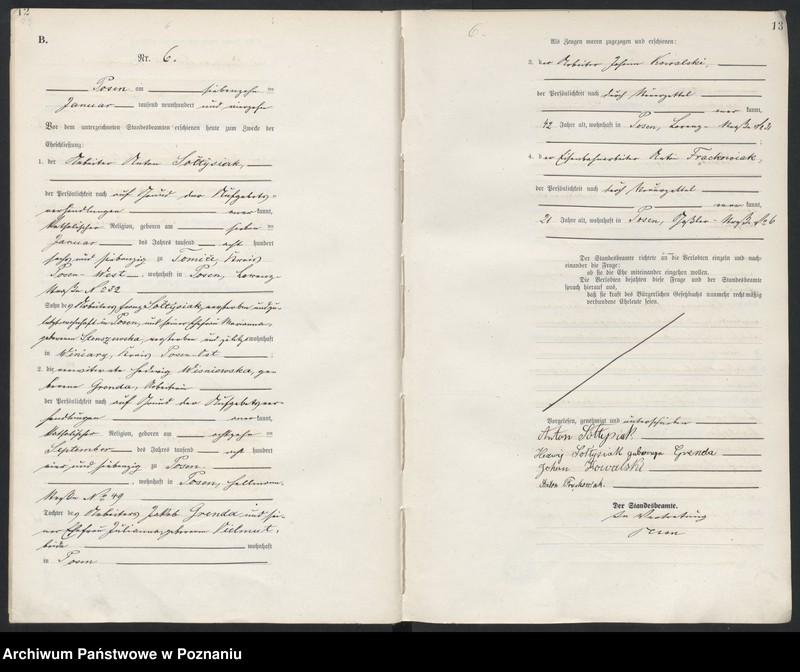 12
B.
Nr. 6.
Posen am siebenzehn ten
Januar tausend neunhundert und vierzehn
Vor dem unterzeichneten Standesbeamten erschienen heute zum Zwecke der
Eheschließung:
1. der Arbeiter Anton Sołtysiak,
der Persönlichkeit nach auf Grund der Aufgebots-
verhandlungen anerkannt,
katholischer Religion, geboren am sieben ten
Januar des Jahres tausend acht hundert
sechs und siebenzig zu Tomice, Kreis
Posen-West, wohnhaft in Posen, Lorenz-
straße No
Sohn des Arbeiters Franz Sołtysiak, verstorben und zu-
letzt wohnhaft in Posen, und seiner Ehefrau Marianna,
geborenen verstorben und zuletzt wohnhaft
in Winiary, Kreis Posen-Ost
2. die verwitwete Hedwig Wisniowska, ge-
borene Grenda, Arbeiterin
der Persönlichkeit nach auf Grund der Aufgebotsver-
handlungen anerkannt,
katholischer Religion, geboren am achtzehn ten
September des Jahres tausend acht hundert
vier und siebenzig zu Posen
, wohnhaft in Posen,
straße No 49
Tochter des Arbeiters Jakob Grenda und sei-
ner Ehefrau Julianna, geborenen
beide wohnhaft
in Posen
6.
13
Als Zeugen waren zugezogen und erschienen:
3. der Arbeiter Johann Kowalski,
der Persönlichkeit nach durch
aner kannt,
42 Jahre alt, wohnhaft in Posen, Lorenz-straße
4. der Eisenbahnarbeiter Anton Frąckowiak,
der Persönlichkeit nach durch
aner kannt,
21 Jahre alt, wohnhaft in Posen, straße No 6
Der Standesbeamte richtete an die Verlobten einzeln und nach-
einander die Frage:
ob sie die Ehe miteinander eingehen wollen.
Die Verlobten bejahten diese Frage und der Standesbeamte
sprach hierauf aus,
daß sie kraft des Bürgerlichen Gesetzbuchs nunmehr rechtmäßig
verbundene Eheleute seien.
Vorgelesen, genehmigt und unterschrieben
Anton Sołtysiak
Hedwig Sołtysiak geborene Grenda
Johan Kowalski
Anton
Der Standesbeamte.
In Vertretung
Archiwum Państwowe w Poznaniu